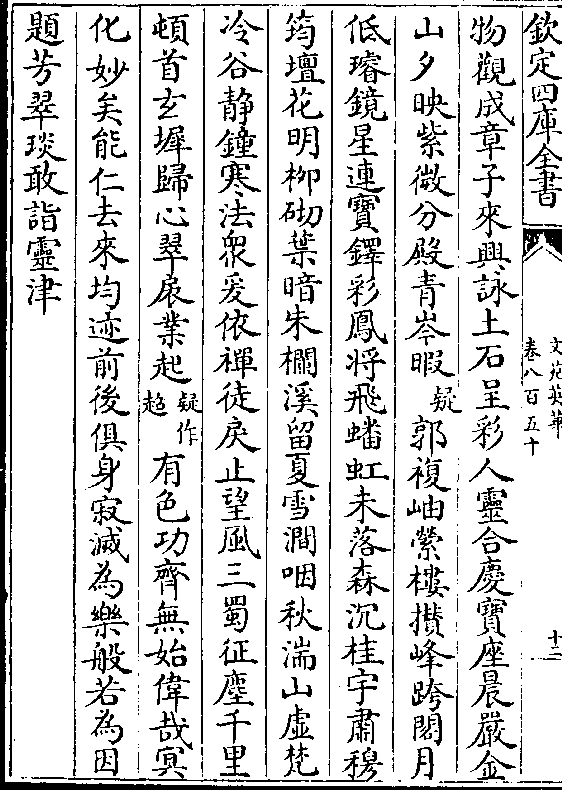 欽定四庫全書
文苑英華
卷八百五十
十二
物觀成章子來興詠土石呈彩人靈合慶寶座晨嚴金
山夕映紫微分殿青岑暇疑郭複岫縈樓攅峰跨閣月
低璿鏡星連寶鐸彩鳳将飛蟠虹未落森沉桂宇肅穆
筠壇花明栁砌葉暗朱欄溪留夏雪澗咽秋湍山虚梵
冷谷静鐘寒法衆爰依禪徒戾止望風三蜀征塵千里
頓首玄墀歸心翠扆業起疑作趋有色功齊無始偉哉冥
化妙矣能仁去來均迹前後俱身寂滅為樂般若為因
題芳翠琰敢詣靈津